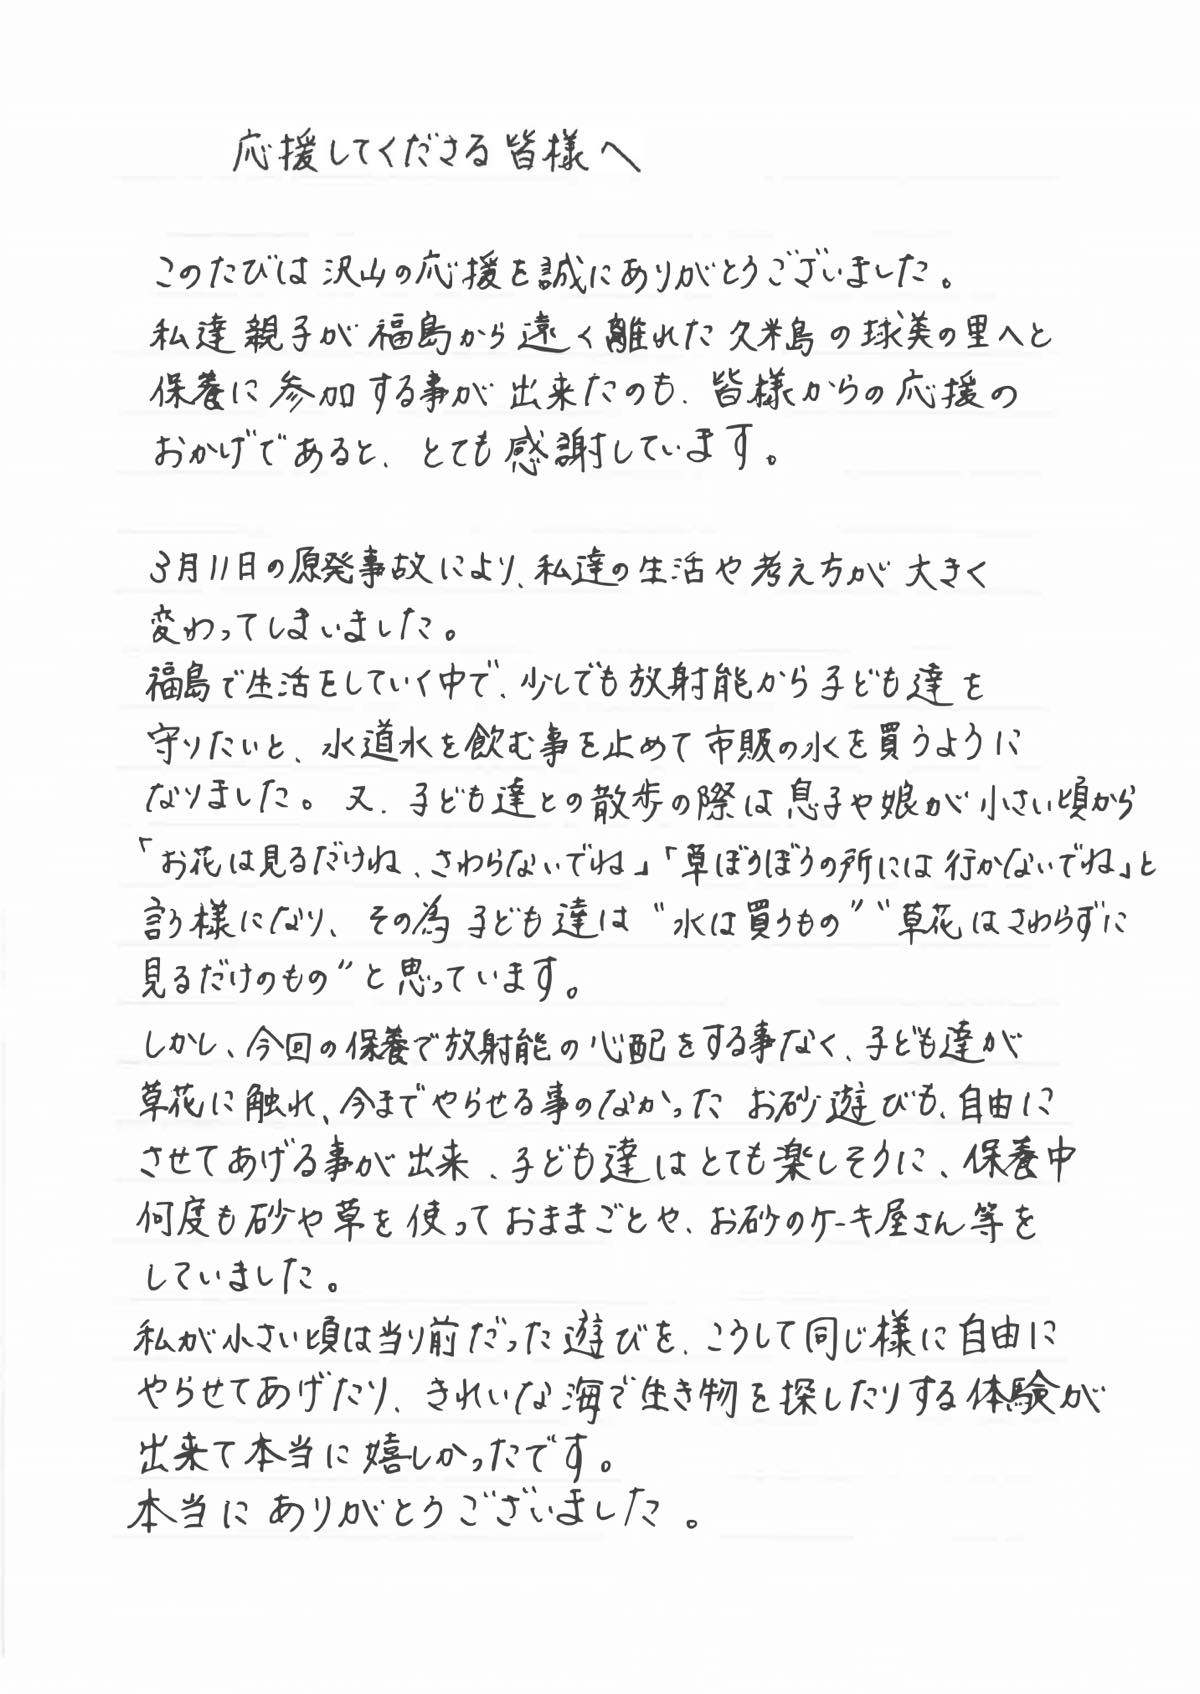 応援してくださる皆様へ
このたびは沢山の応援を誠にありがとうございました。
私達親子が福島から遠く離れた久米島の球美の里へと
保養に参加する事が出来たのも、皆様からの応援の
おかげであると、とても感謝しています。
3月11日の原発事故により、私達の生活や考え方が大きく
変わってしまいました。
福島で生活をしていく中で、少しでも放射能から子ども達を
守りたいと、水道水を飲む事を止めて市販の水を買うように
なりました。又、子ども達との散歩の際は息子や娘が小さい頃から
「お花は見るだけね、さわらないでね」「草ぼうぼうの所には行かないでね」と
言う様になり、その為子ども達は“水は買うもの”“草花はさわらずに
見るだけのもの”と思っています。
しかし、今回の保養で放射能の心配をする事なく、子ども達が
草花に触れ、今までやらせる事のなかったお砂遊びも、自由に
させてあげる事が出来、子ども達はとても楽しそうに、保養中
何度も砂や草を使っておままごとや、お砂のケーキ屋さん等を
していました。
私が小さい頃は当り前だった遊びを、こうして同じ様に自由に
やらせてあげたり、きれいな海で生き物を探したりする体験が
出来て本当に嬉しかったです。
本当にありがとうございました。